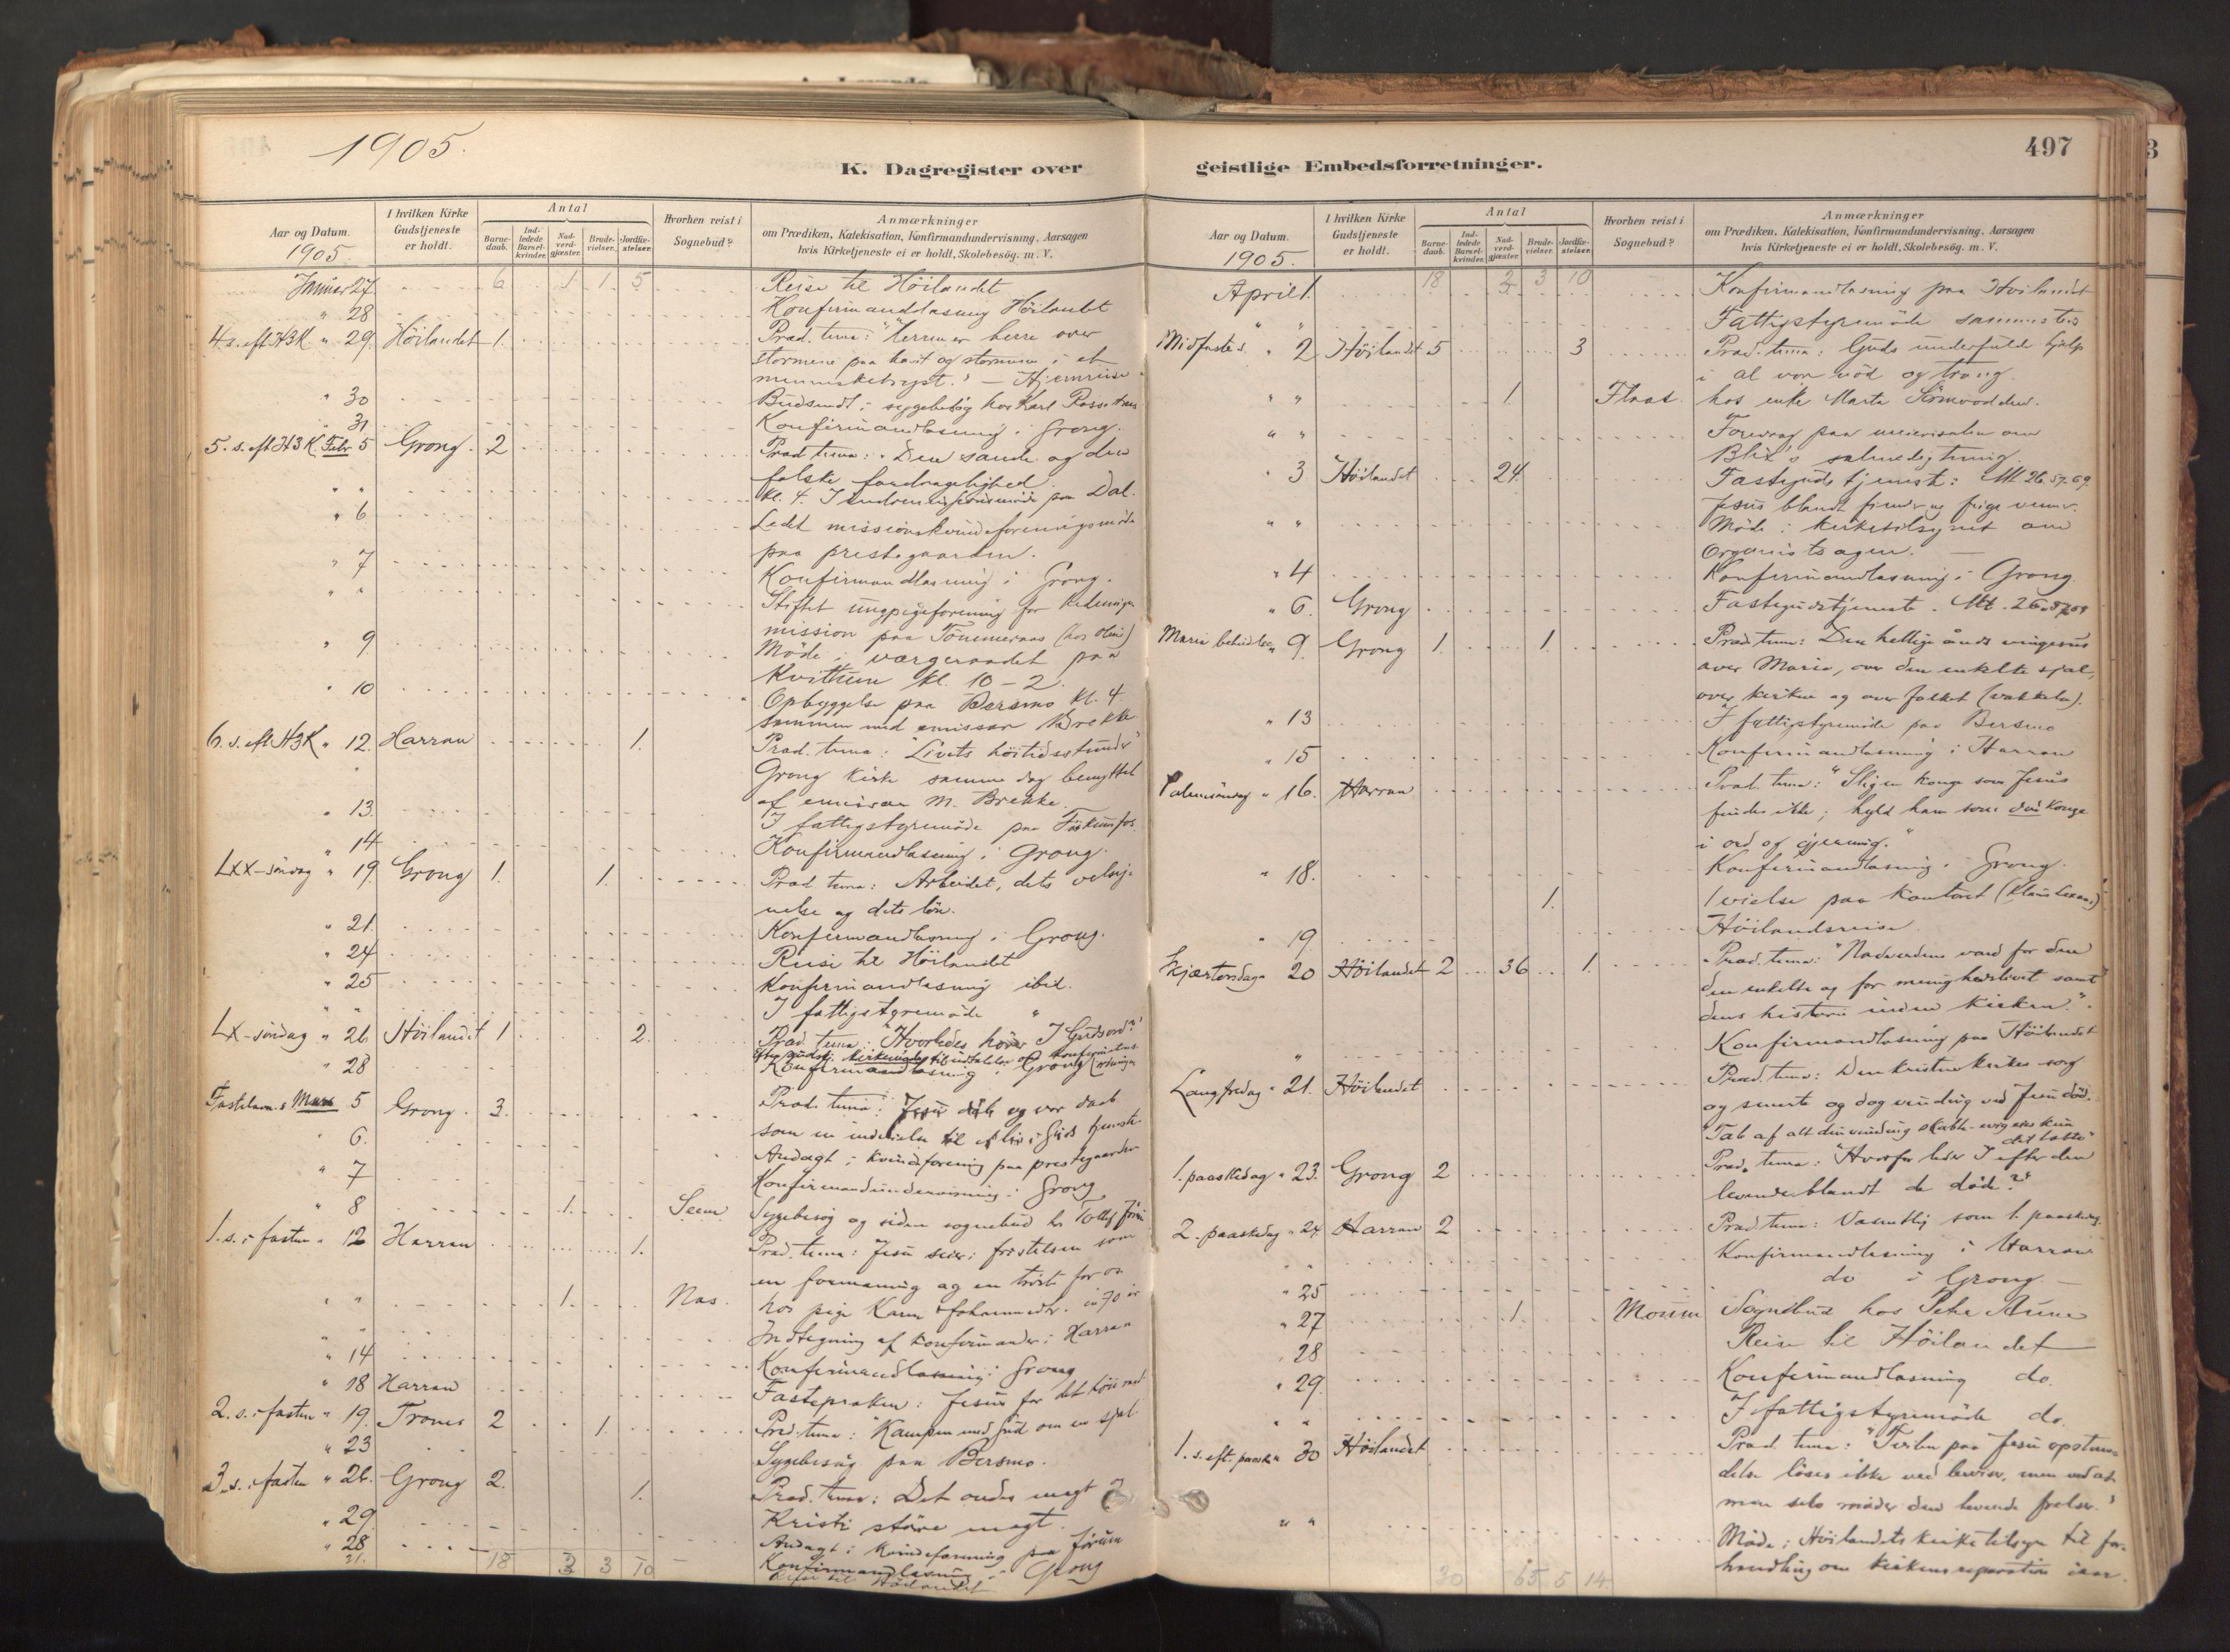 1905.
K. Dagregister over
Aar og Datum.
1905.
I hvilken Kirke
Gudstjeneste
er holdt.
Antal
Barne-
daab.
Ind-
ledede
Barsel-
kvinder.
Nad-
verd-
gjæster.
Brude-
vielser.
Jordfæ-
stelser.
Hvorhen reist i
Sognebud?
Anmærkninger
om Prædiken, Katekisation, Konfirmandundervisning, Aarsagen
hvis Kirketjeneste ei er holdt, Skolebesøg. m. V.
Januar 27 6 1 1 5 Reise til Höilandet
" 28 Konfirmandlæsning Höilandet
4. s. eft. H3K. " 29. Höilandet 1. Præd. tema: "Herren er herre over
stormene paa havet og stormene i et
menneskebryst." — Hjemreise
" 30 Budsendt i sygebesøg hos Karl
" 31 Konfirmandlæsning i Grong.
5. s. eft H3K. Febr 5 Grong. 2 Præd tema: "Den sande og den
falske fordragelighed.
" " kl. 4. Indremissionsmöde paa Dal.
" 6 Ledet missionskvindeforeningsmöde
paa prestegaarden.
" 7 Konfirmandlæsning i Grong.
" " Stiftet ungpigeforening for
mission paa Tömmeraas
" 9 Möde i værgeraadet paa
Kvittum kl. 10-2.
" 10 Opbyggelse paa Bersmo kl. 4
sammen med emissær Brekke
6. s. eft H3K " 12. Harran 1. Præd. tema: "Livets höitidsstunder"
Grong kirke samme dag benyttet
af emissær M. Brekke.
" 13. I fattigstyremöde paa
" 14 Konfirmandlæsning i Grong.
LXX-söndag " 19. Grong 1. 1. Præd tema: Arbeidet, dets velsig-
nelse og dets lön.
" 21. Konfirmandlæsning i Grong.
" 24 Reise til Höilandet
" 25 Konfirmandlæsning ibid.
I fattigstyremöde "
LX-söndag " 26 Höilandet 1 2. Præd. tema: "Hvorledes hörer I Guds ord?"
" 28 Konfirmandlæsning i Grong
Fastelavns. Mars 5 Grong. 3. Præd. tema: Jesu daab og vor daab
som en indvielse til et liv i Guds tjeneste.
" 6. Andagt i kvindeforening paa prestegaarden
" 7 Konfirmandundervisning i Grong
" 8 1. Seem Sygebesøg og siden sognebud
1. s. i fasten " 12 Harran 1. Præd. tema: Jesu seier i fristelsen som
en formaning og en tröst for os
" " 1. Næs. hos pige Karen
" " Indtegning af konfirmander i Harran
" 14 Konfirmandlæsning i Grong
" 18 Harran Fastepræken: Jesus for det höie raad
2. s. i fasten " 19. Trones 2 1. Præd. tema: "Kampen med Gud om en sjæl
" 23 Sygebesög paa Bersmo.
3. s. i fasten " 26. Grong 2. 1. Præd. tema: Det ondes magt
Kristi större magt.
" 29 Andagt i kvindeforening paa
" 28 Konfirmandlæsning i Grong
" 31. Reise til Höilandet
18 3 3 10
497
geistlige Embedsforretninger.
Aar og Datum.
1905.
I hvilken Kirke
Gudstjeneste
er holdt.
Antal
Barne-
daab.
Ind-
ledede
Barsel-
kvinder.
Nad-
verd-
gjæster.
Brude-
vielser.
Jordfæ-
stelser.
Hvorhen reist i
Sognebud?
Anmærkninger
om Prædiken, Katekisation, Konfirmandundervisning, Aarsagen
hvis Kirketjeneste ei er holdt, Skolebesøg. m. V.
April 1. 18 3 10 Konfirmandlæsning paa Höilandet
" " Fattigstyremöde sammesteds
Midfastes. " 2 Höilandet 5 3 Præd. tema: Guds underfulde hjælp
i al vor nöd og trang.
" " 1. Flaat. hos enke Marta
" " Foredrag paa meierisalen om
Blix's salmedigtning.
" 3 Höilandet 24. Fastegudstjeneste: Mt 26.57-69.
Jesus blandt fiender og feige venner.
" " Möde i kirketilsynet om
Organistsagen. —
" 4 Konfirmandlæsning i Grong.
" 6. Grong Fastegudstjeneste. Mt. 26.57-69
Mariæ bebudelse " 9. Grong 1. 1. Præd. tema: Den hellige ånds vingesus
over Maria, over den enkelte sjæl,
over kirken og over folket (vækkelse).
" 13 I fattigstyremöde paa Bersmo
" 15 Konfirmandlæsning i Harran
Palmesöndag " 16. Harran Præd. tema: "Slig en konge som Jesus
findes ikke; hyld ham som din konge
i ord og gjerning."
" 18. Konfirmandlæsning i Grong.
1. 1 vielse paa kontoret
" 19 Höilandsreise
Skjærtorsdag " 20 Höilandet 2 36 1. Præd. tema: "Nadverdens værd for den
den enkelte og for menighedslivet samt
dens historie inden kirken."
" Konfirmandlæsning paa Höilandet
Langfredag " 21. Höilandet Præd. tema: Den kristne kirkes sorg
og smerte og dog vinding ved Jesu död.
"Tab af alt din vinding skabte
1. paaskedag " 23. Grong 2 Præd. tema: "Hvorfor leder I efter den
levende blandt de döde?"
2. paaskedag " 24. Harran 2 Præd tema: Væsentlig som 1. paaskedag.
" " Konfirmandlæsning i Harran
" 25 do i Grong —
" 27 1. Mouum Sognebud hos Aune
" 28 Reise til Höilandet
" 29 Konfirmandlæsning do.
" " I fattigstyremöde do.
1. s. eft. paaske " 30 Höilandet Præd. tema: "Tvilen paa Jesu opstan-
delse löses ikke ved beviser, men ved at
man selv möder den levende frelser."
" " Möde i Höilandets kirketilsyn til for-
handling om kirkens reparation iaar.
30 65 5 14